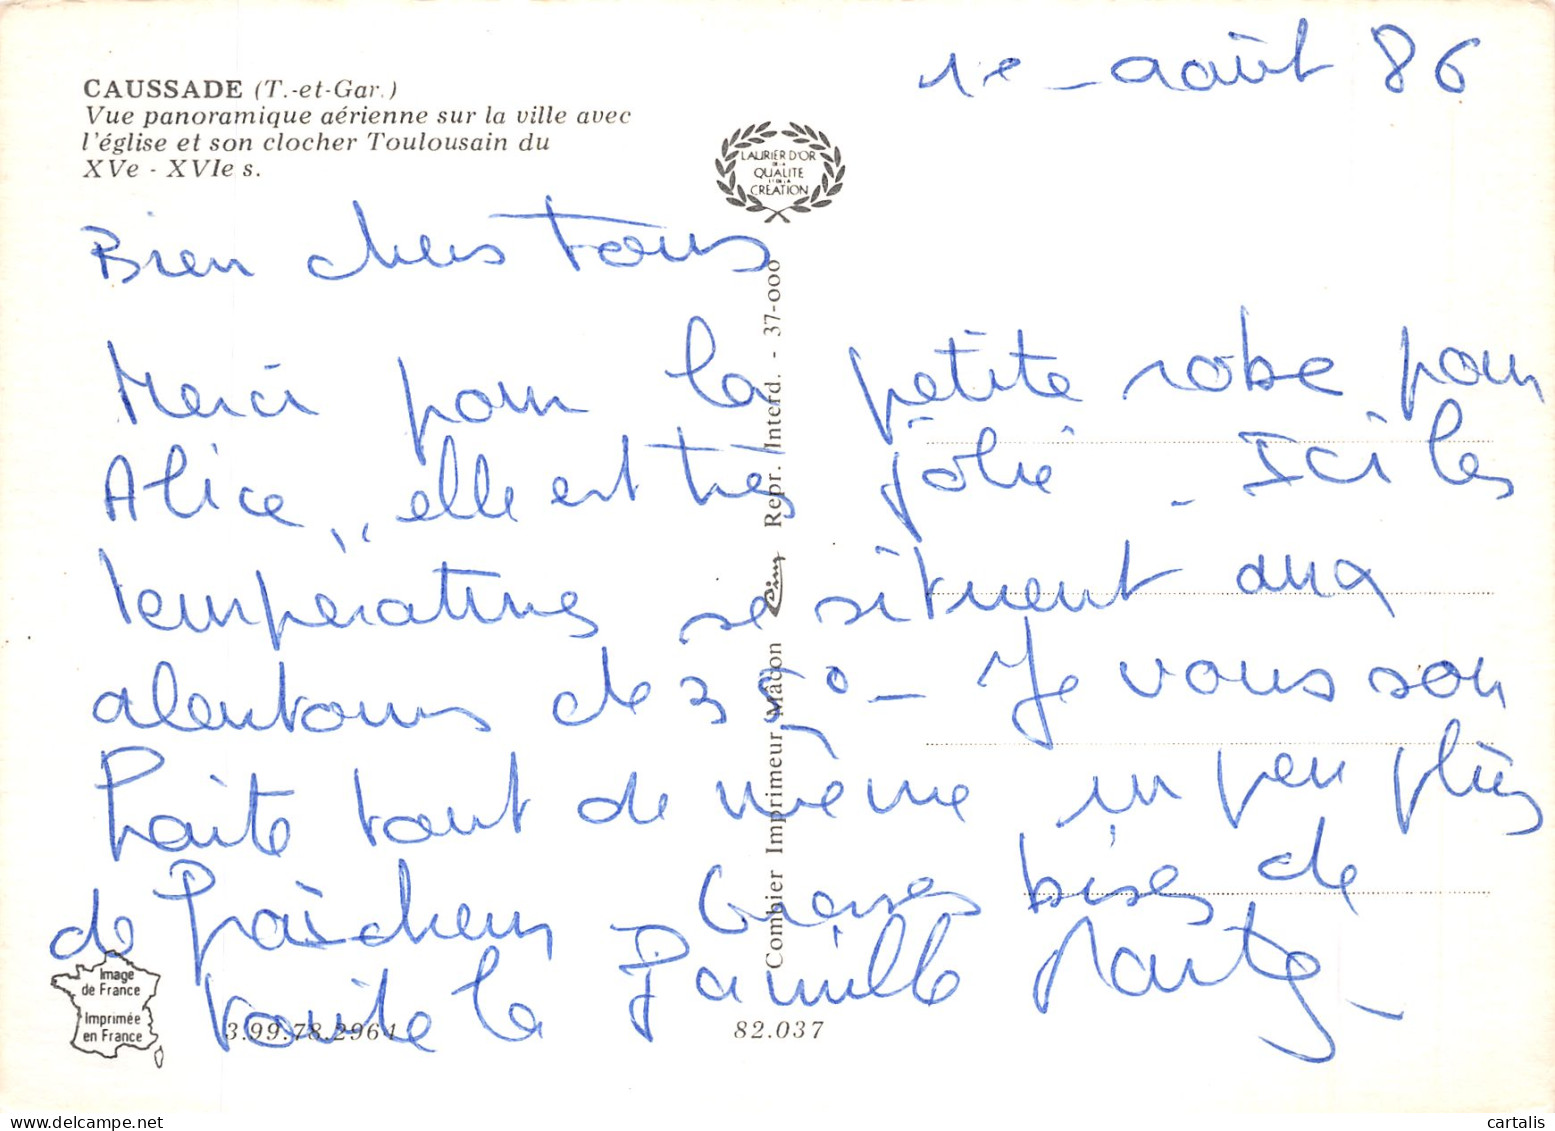 1e - août 86
CAUSSADE (T.-et-Gar.)
Vue panoramique aérienne sur la ville avec
l'église et son clocher Toulousain du
XVe - XVIe s.
LAURIER D'OR
DE LA
QUALITE
ET DE LA
CREATION
Bien chers tous
Merci pour la petite robe pour
Alice, elle est très jolie - Ici les
températures se situent aux
alentours de 35° - Je vous sou
haite tout de même un peu plus
de fraîcheur - Grosses bises de
toute la famille
Combier Imprimeur Macon Cim Repr. Interd. - 37-000
Image
de France
Imprimée
en France
3.99.78.2961
82.037
cartalis